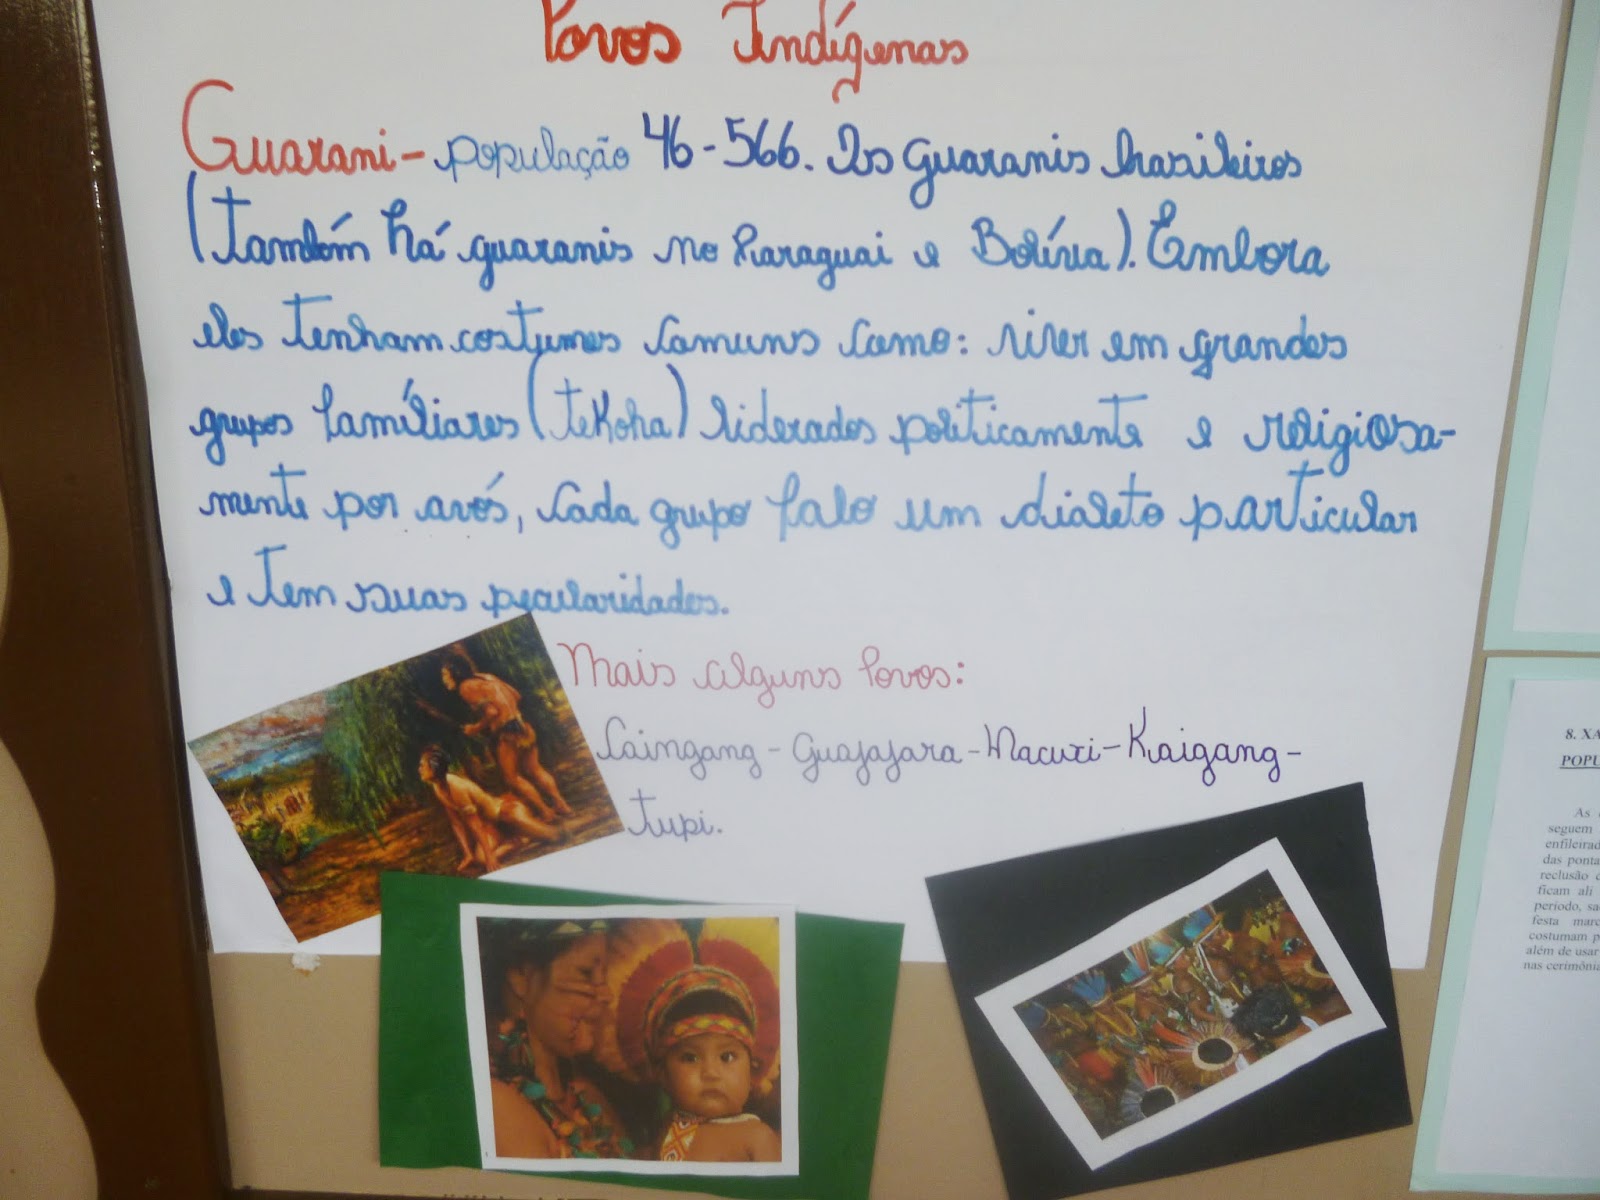 Povos Indígenas
Guarani - população 46-566. Os guaranis brasileiros
(também há guaranis no Paraguai e Bolívia). Embora
eles tenham costumes comuns como: viver em grandes
grupos famíliares (tekoha) liderados políticamente e religiosa-
mente por avós, cada grupo falo um dialeto particular
e tem suas pecularidades.
Mais alguns Povos:
Caingang - Guajajara - Macuxi - Kaigang -
tupi.
8. XA
POPU
As
seguem
enfileirad
das ponta
reclusão
ficam ali
período, sa
festa marc
costumam p
além de usar
nas cerimônia